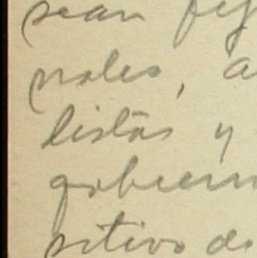 sean
nales, a
listas y
gobiern
sitivo de